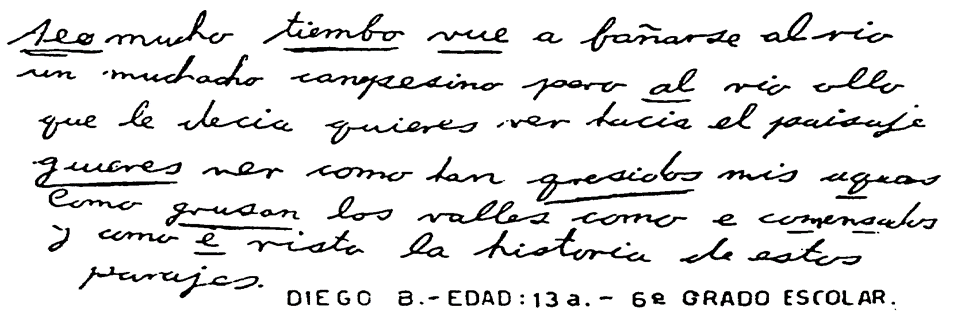 seo mucho tiembo vue a bañarse al rio
un muchacho canpesino pero al rio ollo
que le decia quieres ver hacia el paisaje
guieres ver como tan qresidos mis aguas
Como grusan los valles como e comensados
y como e visto la historia de estos
parajes.
DIEGO B.- EDAD: 13 a. - 6º GRADO ESCOLAR.